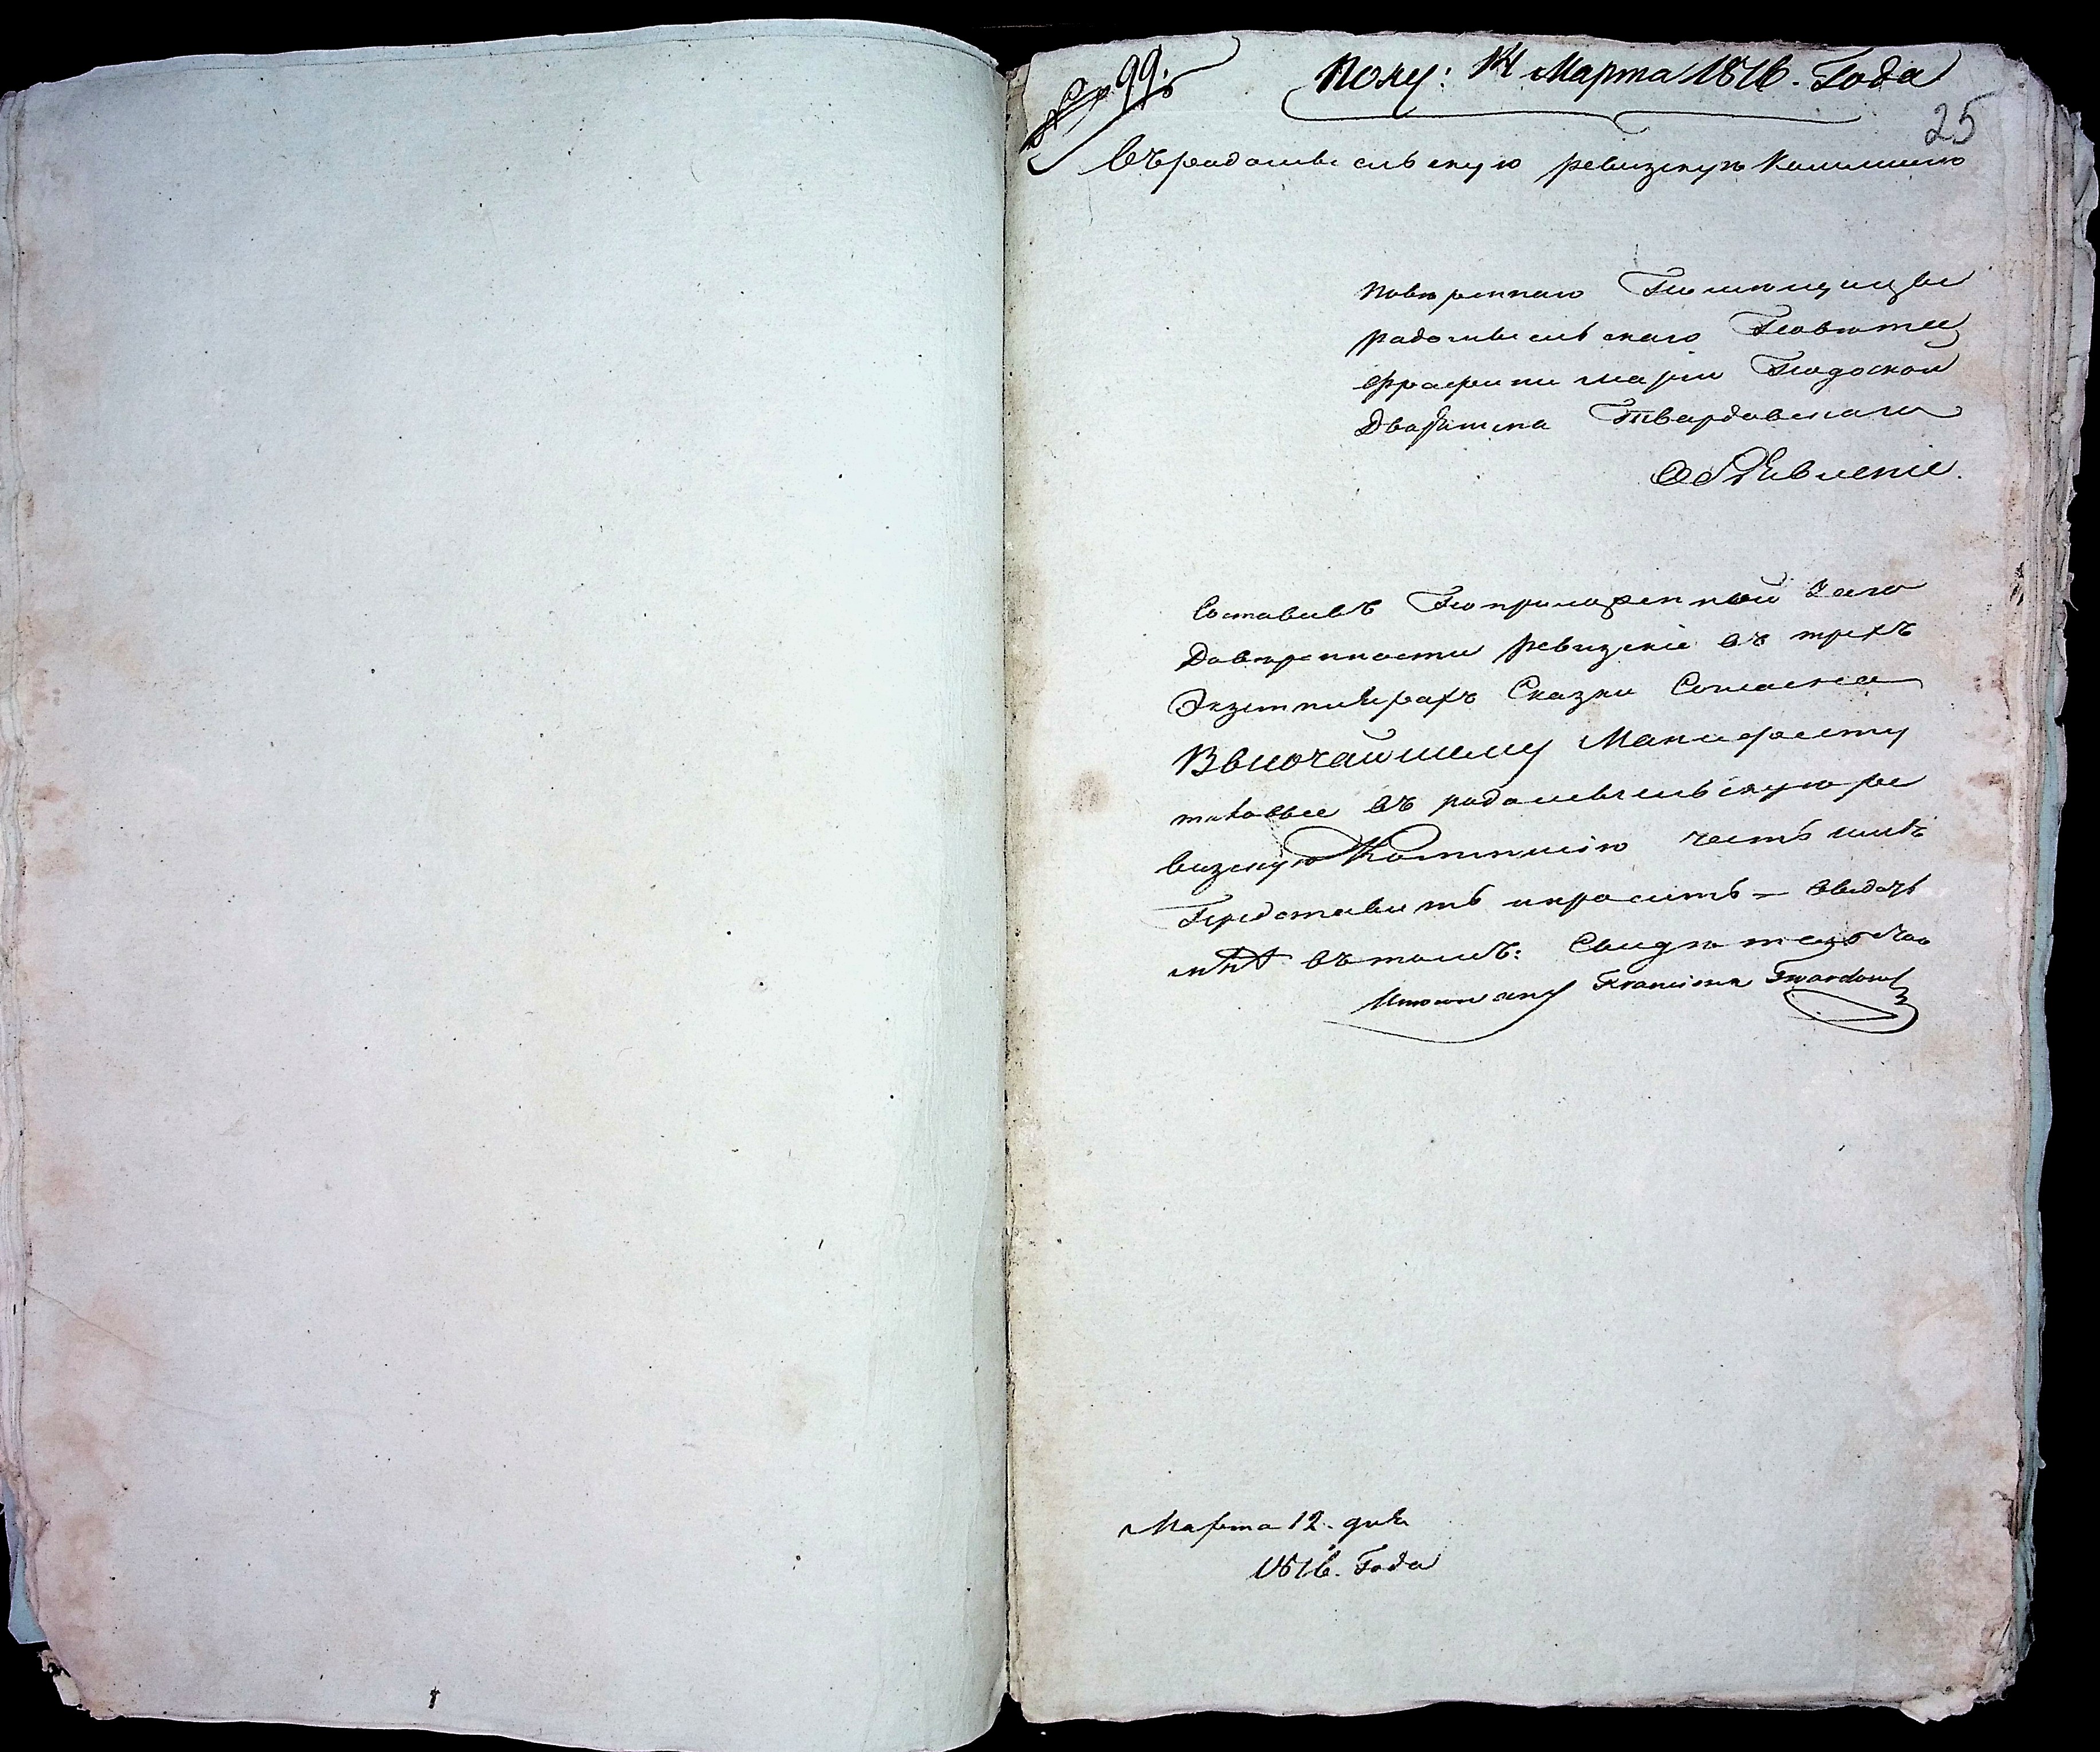 № 99.
Полу: 14 Марта 1816. Года
25
Въ радомысльскую ревизскую Комиссию
Повѣреннаго Помѣщицы
радомысльскаго Повѣта
Графини Маріи
Дворянина Твардовскаго
Объявленіе.
Составивъ По приложенной
Довѣренности ревизскіе въ трехъ
Экземплярахъ Сказки Согласно
Высочайшему Манифесту
таковые въ радомысльскую ре
визскую Коммисію честь имѣ
Представить и просить — овыдачѣ
мнѣ въ томъ:
Franciszek Twardowski
Марта 12. дня
1816. Года